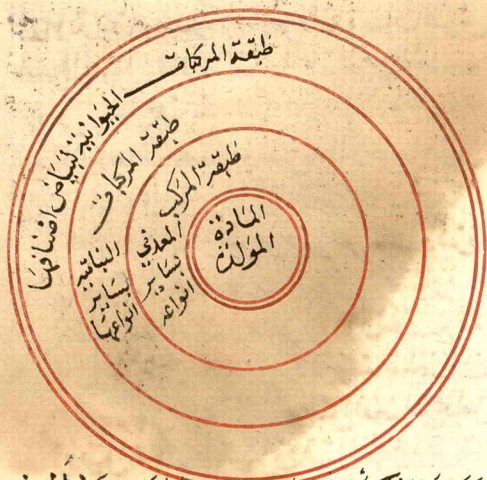 طبقة المركبات الحيوانية بسائر اصنافها
طبقة المركبات
النباتية
بساير
انواعها
طبقة المركب
المعدني
بساير
انواعه
المادة
المولدة